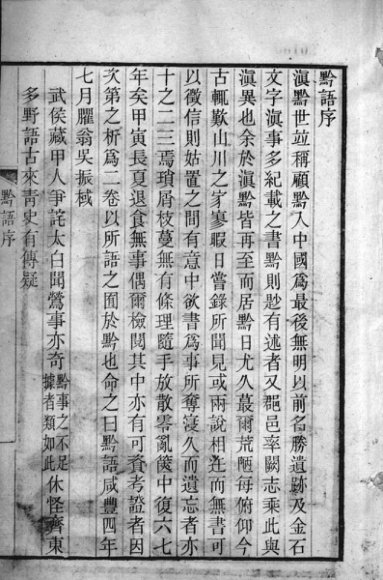 黔語序
滇黔世竝稱顧黔入中國爲最後無明以前名勝遺跡及金石
文字滇事多紀載之書黔則尠有述者又郡邑率闕志乘此與
滇異也余於滇黔皆再至而居黔日尤久蕞爾荒陬每俯仰今
古輒歎山川之寂寥暇日嘗錄所聞見或兩說相歧而無書可
以徵信則姑置之間有意中欲書爲事所奪寖久而遺忘者亦
十之二三焉瑣屑枝蔓無有條理隨手放散零亂篋中復六七
年矣甲寅長夏退食無事偶爾檢閱其中亦有可資考證者因
次第之析爲二卷以所語之囿於黔也命之曰黔語咸豐四年
七月臞翁吳振棫
武侯藏甲人爭詫太白聞鶯事亦奇黔事之不足據者類如此休怪齊東
多野語古來靑史有傳疑
黔語序